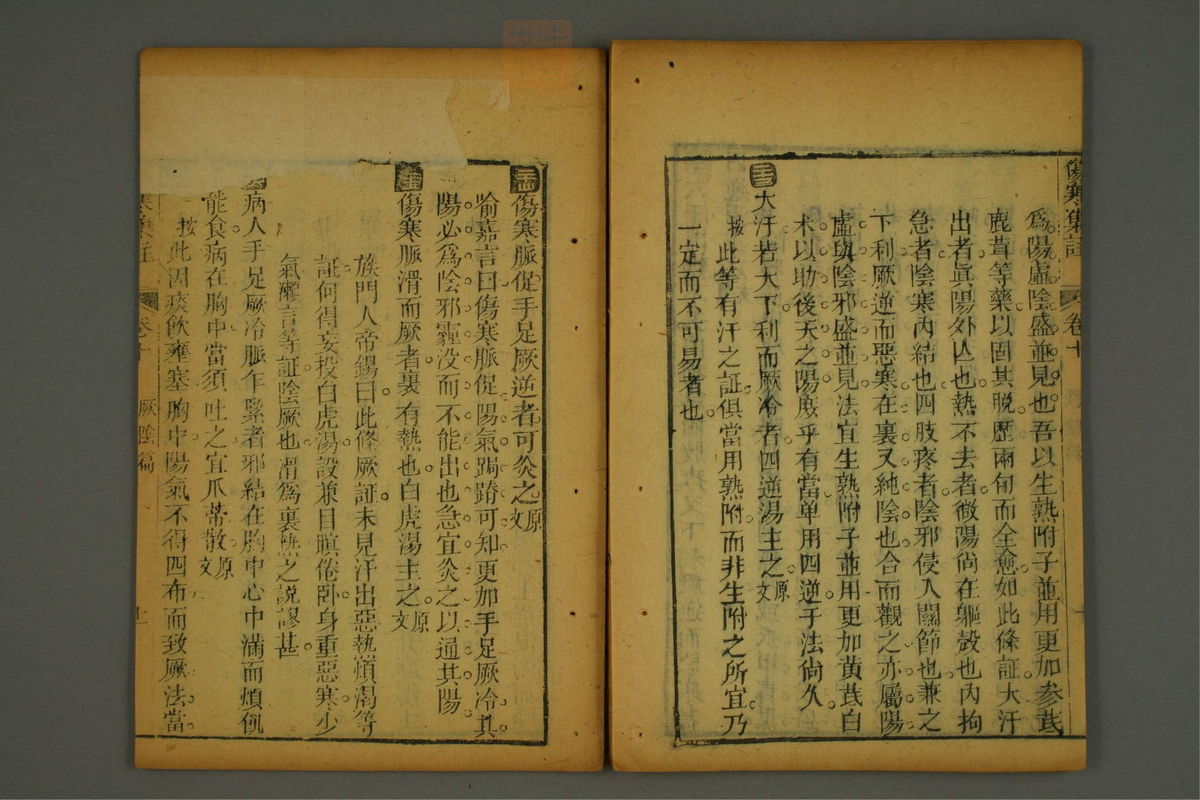 傷寒集註
卷十
為陽虛陰盛並見也吾以生熟附子並用更加參茋
鹿茸等藥以固其脫歷兩旬而全愈如此條証大汗
出者眞陽外亾也熱不去者微陽尙在軀殼也內拘
急者陰寒內結也四肢疼者陰邪侵入關節也兼之
下利厥逆而惡寒在裏又純陰也合而觀之亦屬陽
虛與陰邪盛並見法宜生熟附子並用更加黃茋白
朮以助後天之陽庶乎有當单用四逆于法尙欠
大汗若大下利而厥冷者四逆湯主之原文
按此等有汗之証俱當用熟附而非生附之所宜乃
一定而不可易者也
傷寒脈促手足厥逆者可灸之原文
喻嘉言曰傷寒脈促陽氣跼蹐可知更加手足厥冷其
陽必為陰邪霾没而不能出也急宜灸之以通其陽
傷寒脈滑而厥者裏有熱也白虎湯主之原文
族門人帝錫曰此條厥証未見汗出惡熱煩渴等
証何得妄投白虎湯設兼目瞑倦卧身重惡寒少
氣懶言等証陰厥也滑為裏熱之説謬甚
病人手足厥冷脈乍緊者邪結在胸中心中滿而煩飢
能食病在胸中當須吐之宜爪蒂散原文
按此因痰飲壅塞胸中陽氣不得四布而致厥法當
厥陰篇